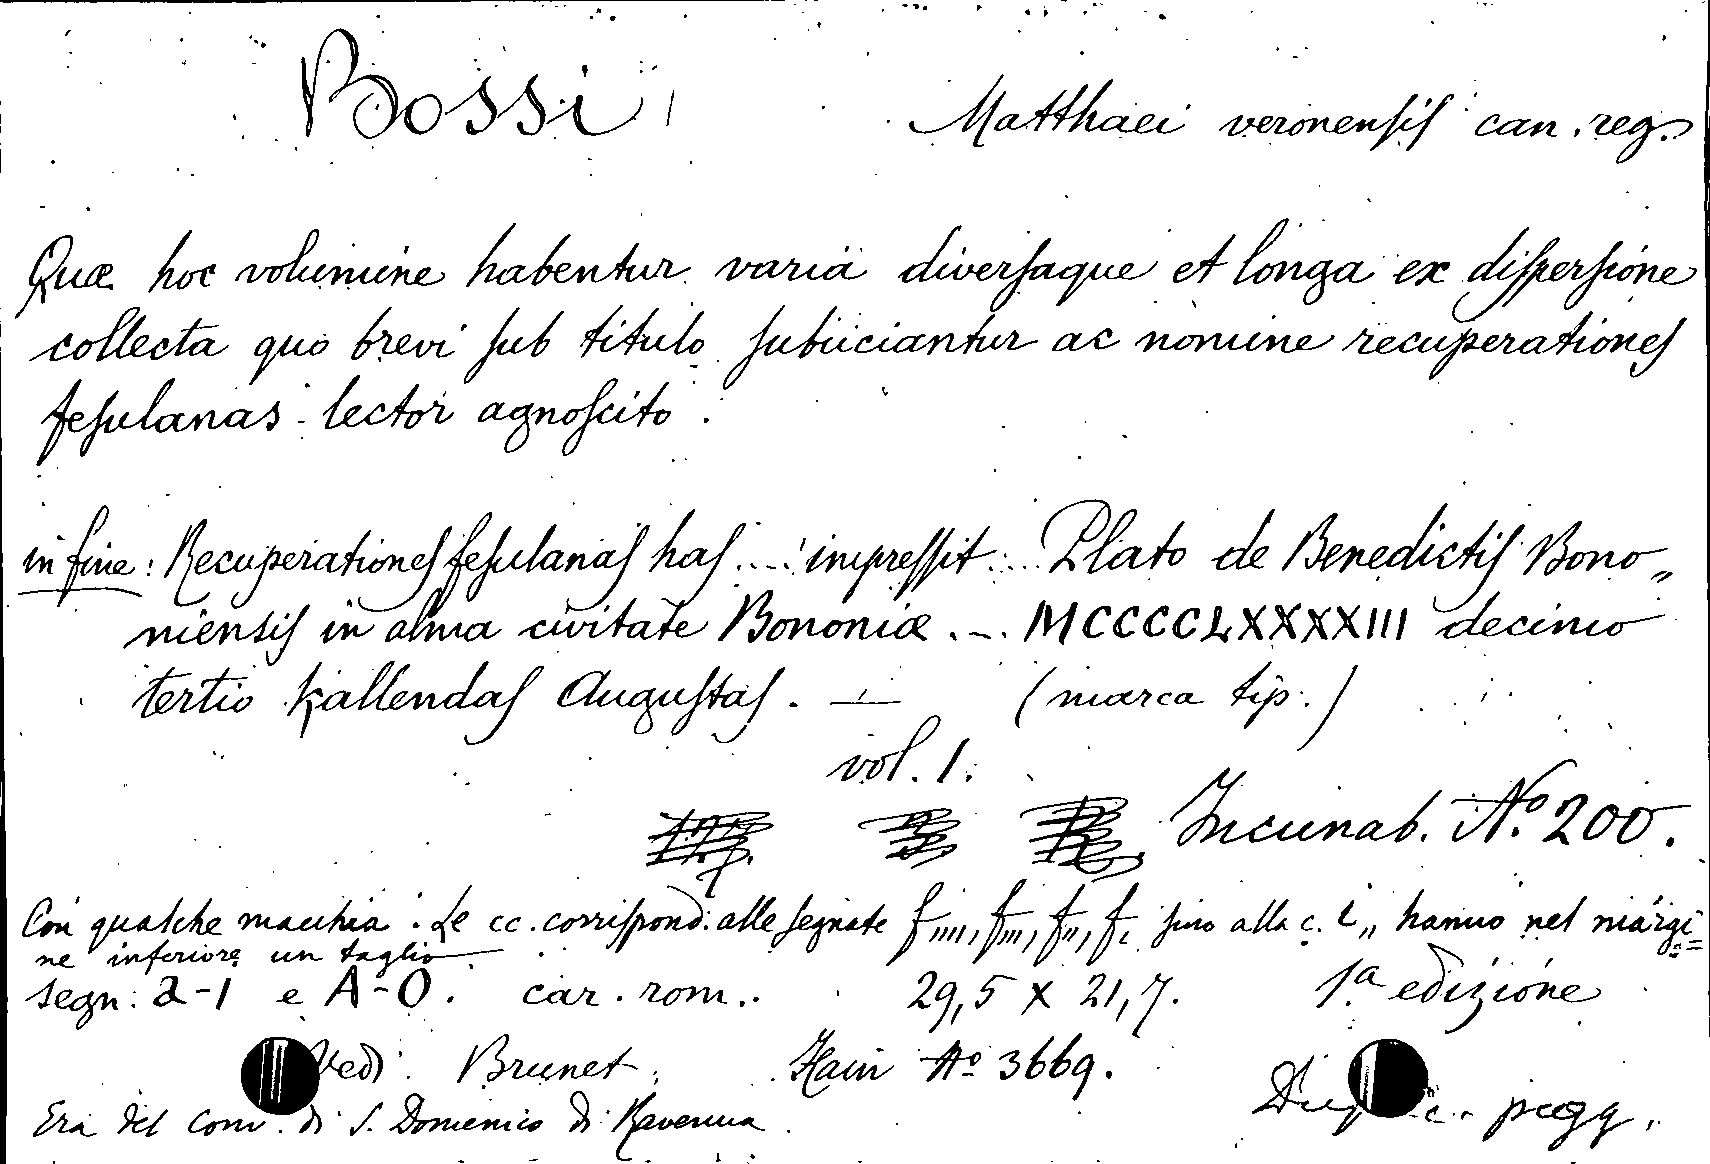 Bossi, Matthaei veronensis can. reg.
Quæ hoc volumine habentur varia diversaque et longa ex dispersione
collecta quo brevi sub titulo subiiciantur ac nomine recuperationes
fesulanas lector agnoscito.
in fine: Recuperationes fesulanas has .... impressit ... Plato de Benedictis Bono„
niensis in alma civitate Bononiæ ... MCCCCLXXXXIII decimo
tertio kallendas Augustas. — (marca tip.)
vol. 1.
Incunab. Nº 200.
Con qualche macchia. Le cc. corrispond. alle segnate fıııı, fııı, fıı, fı sino alla c. iıı hanno nel margi=
ne inferiore un taglio
segn: a-l e A-O. car. rom. 29,5 x 21,7. 1ª edizione
Vedi Brunet. Hain Nº 3669.
Era del Conv. di S. Domenico di Ravenna. pegg.